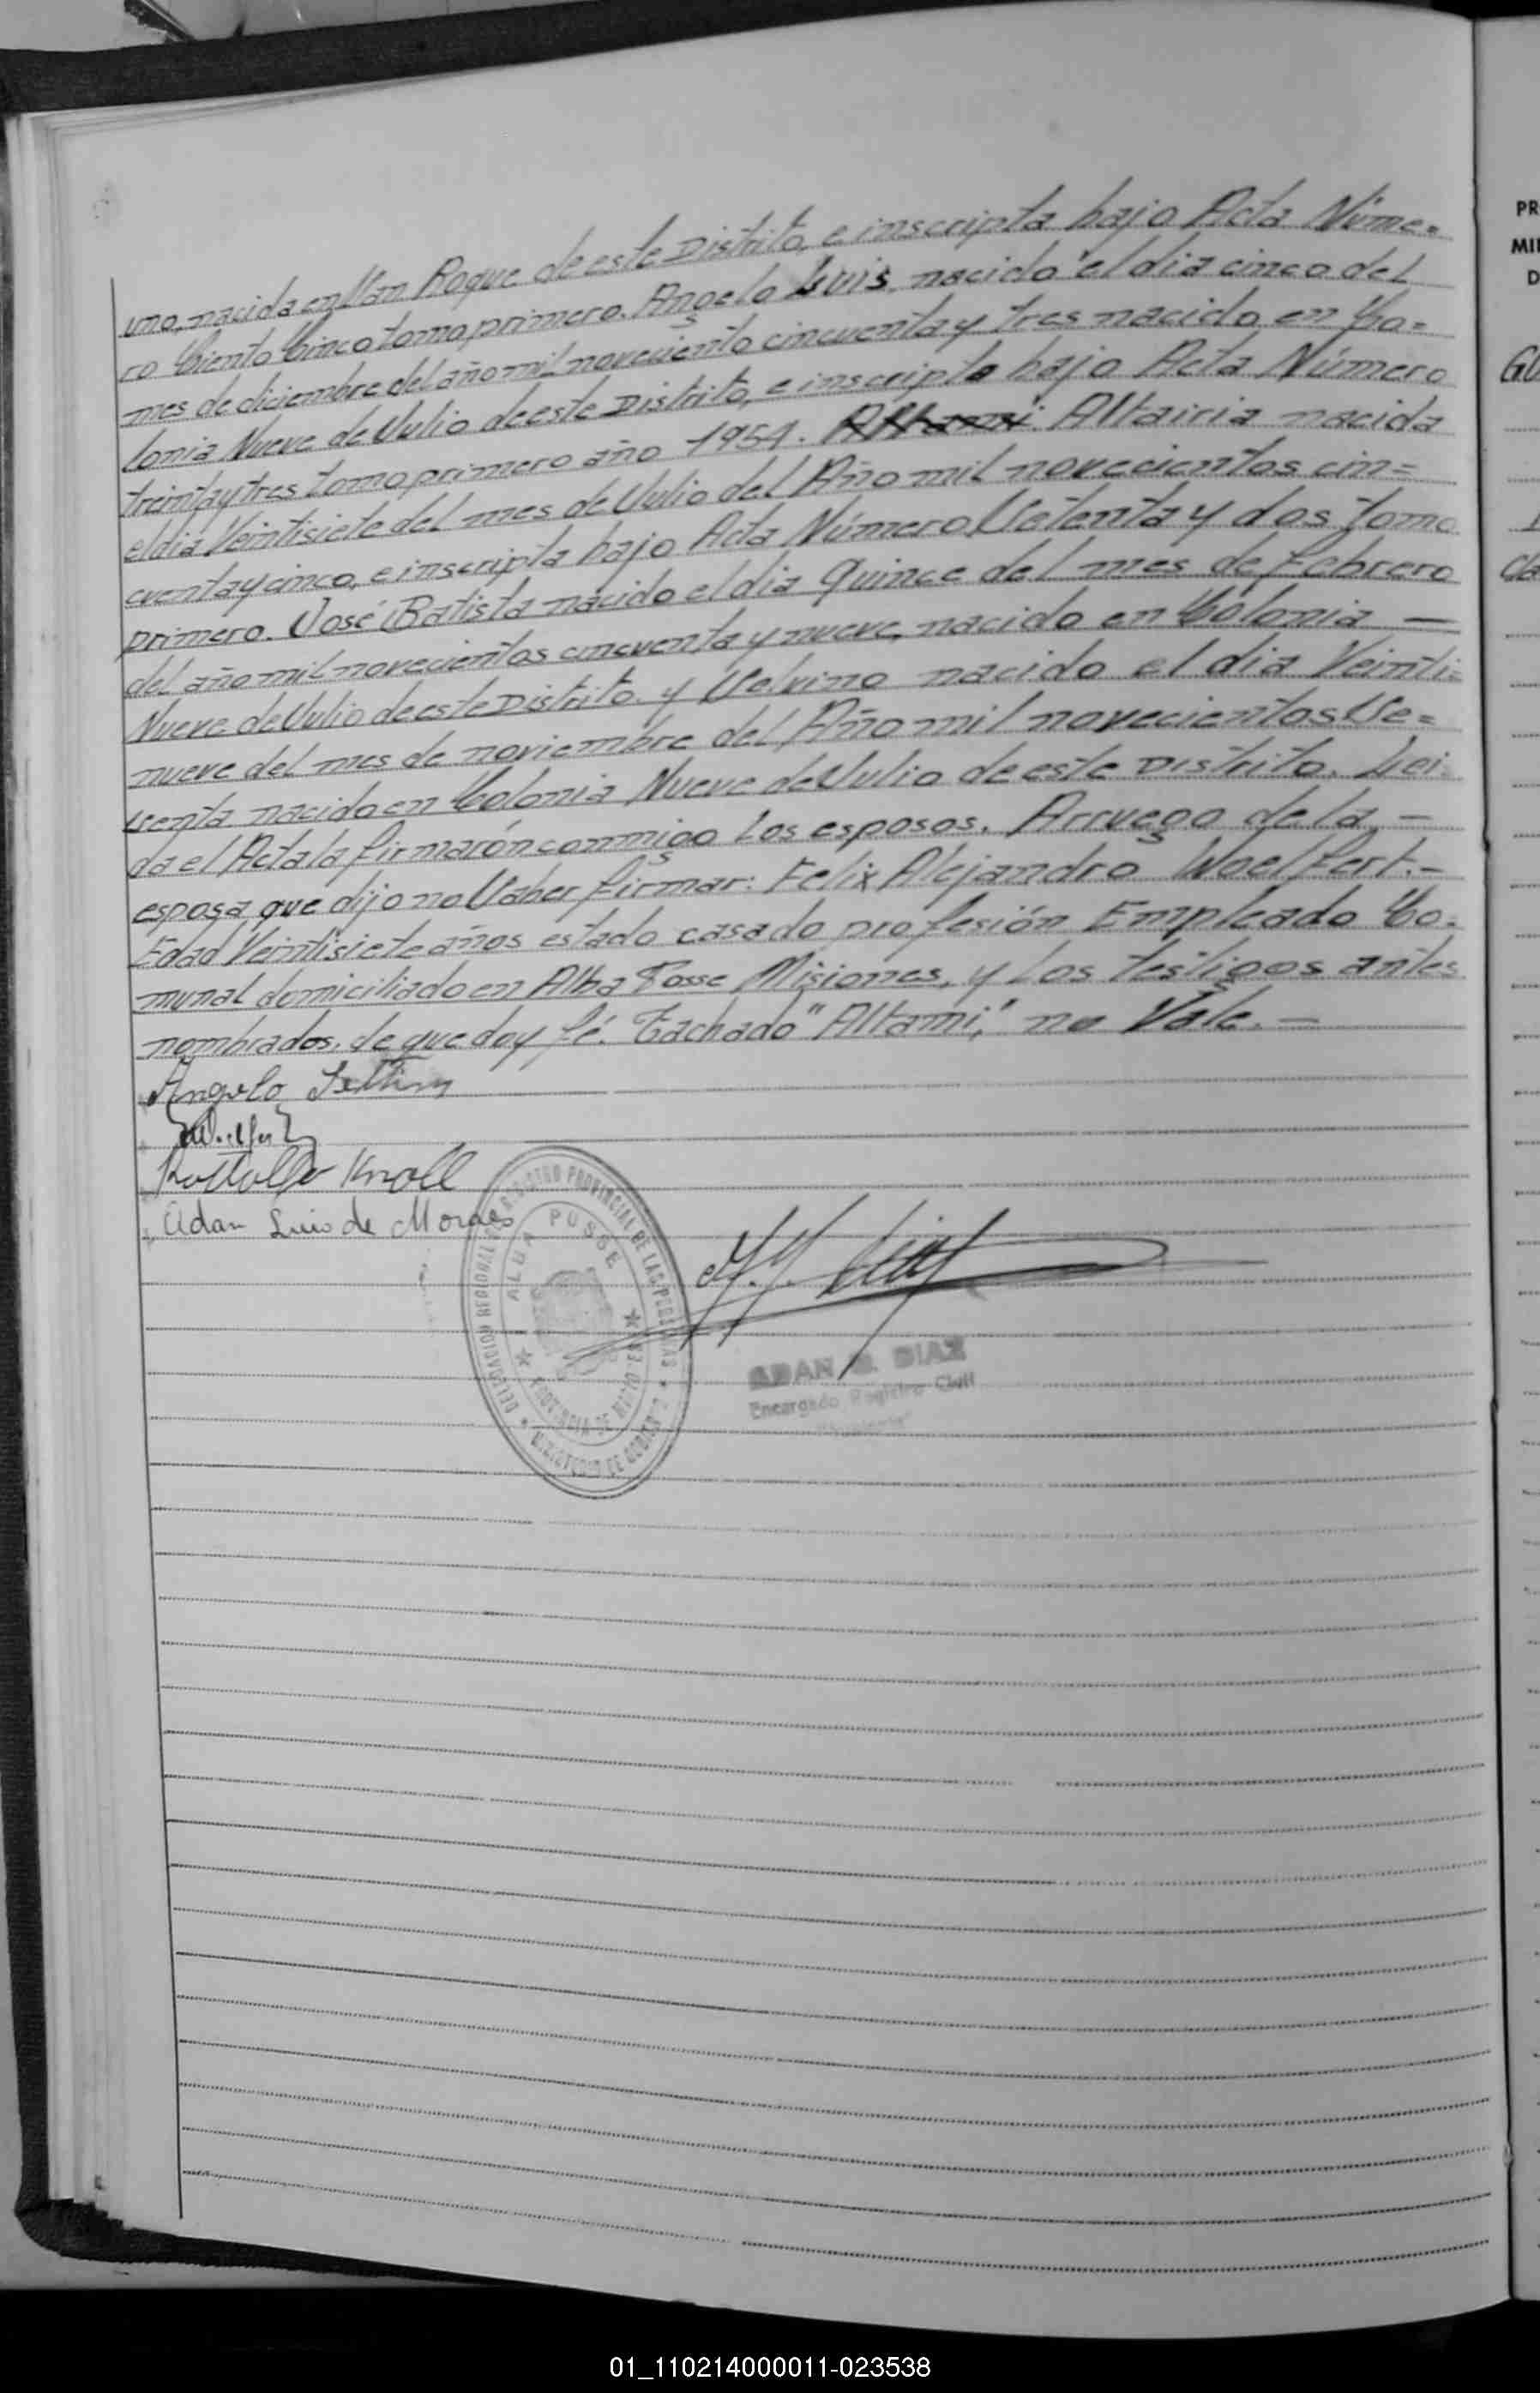 uno, nacida en San Roque de este Distrito, e inscripta bajo Acta Núme=
ro Ciento Cinco tomo primero. Angelo Luis, nacido el dia cinco del
mes de diciembre del año mil noveciento cincuenta y tres nacido en Co=
lonia Nueve de Julio de este Distrito, e inscripto bajo Acta Número
treinta y tres tomo primero año 1954. Altami. Altairia nacida
el dia Veintisiete del mes de Julio del Año mil novecientos cin=
cuenta y cinco, e inscripta bajo Acta Número Setenta y dos Tomo
primero. José Batista nacido el dia Quince del mes de Febrero
del año mil novecientos cincuenta y nueve, nacido en Colonia —
Nueve de Julio de este Distrito. y Selvino nacido el dia Veinti=
nueve del mes de noviembre del Año mil novecientos Se=
senta nacido en Colonia Nueve de Julio de este Distrito. Lei
da el Acta la firmarón conmigo Los esposos. Arruego de la —
esposa que dijo no Saber firmar: Felix Alejandro Woelfert.—
Edad Veintisiete años estado casado profesión Empleado Co=
munal domiciliado en Alba Posse Misiones, y Los testigos antes
nombrados. de que doy fé. Tachado "Altami," no Vale. —
Angelo
Rodolfo Knoll
Adan Luis de Moraes
DELEGACION REGIONAL DEL REGISTRO PROVINCIAL DE LAS PERSONAS
ALBA POSSE
PROVINCIA DE MISIONES
MINISTERIO DE GOBIERNO
ADAN D. DIAZ
Encargado Registro Civil
PR
MI
D
GU
01_110214000011-023538